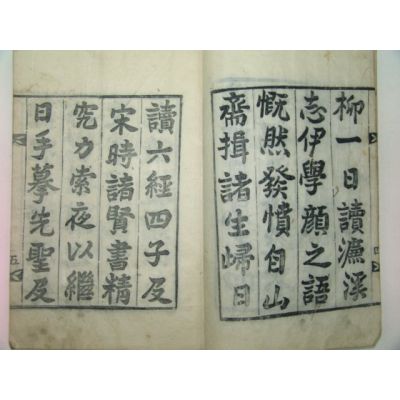 柳一日讀濂溪
志伊學顔之語
慨然發憤自山
齋揖諸生歸日
讀六經四子及
宋時諸賢書精
究力索夜以繼
日手摹先聖及
五